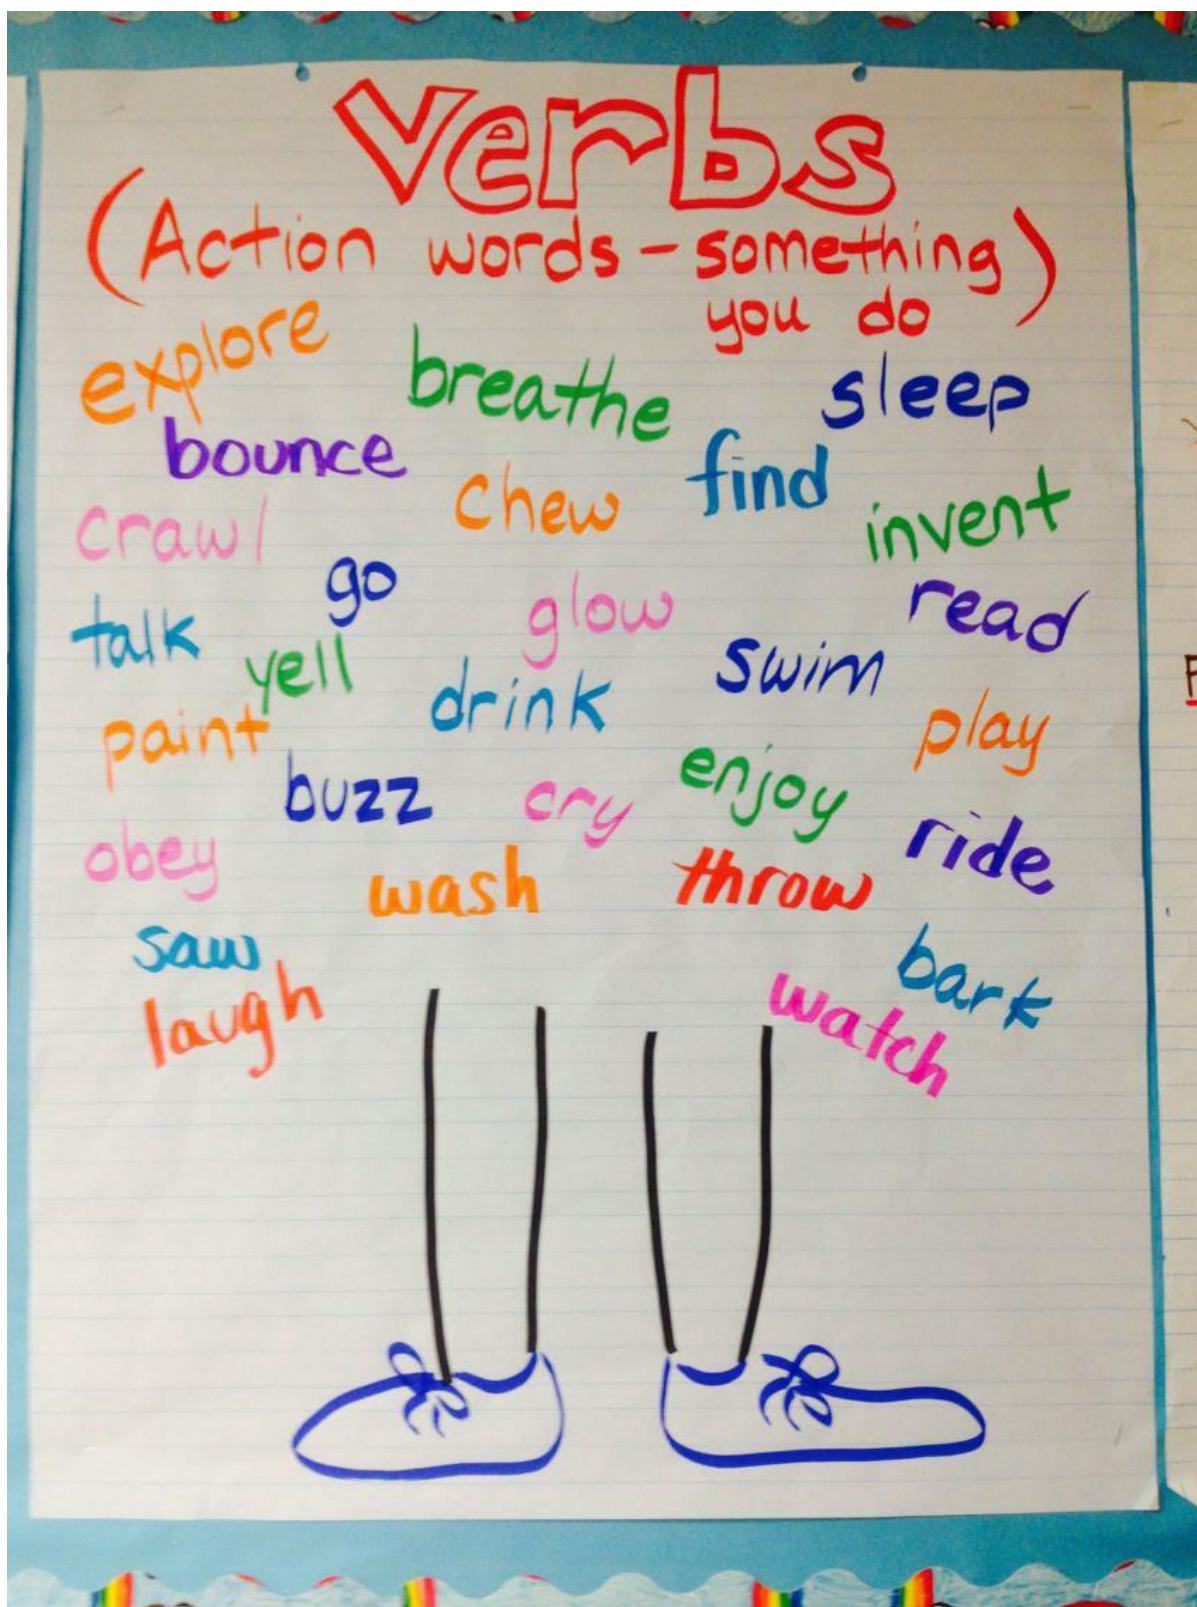 Verbs
(Action words - something
you do)
explore breathe sleep
bounce chew find
crawl go glow invent
talk yell drink swim read
paint buzz cry enjoy play
obey wash throw ride
saw bark
laugh watch